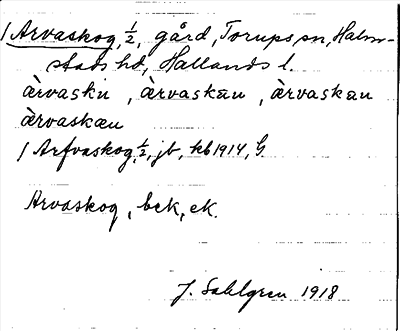 1 Arvaskog, 1/2, gård, Torups sn, Halm-
stads hd, Hallands l.
àrvaskɩn, àrvaskaɯ, àrvskaɯ
àrvaskæɯ
1 Arfvaskog, 1/2, jb, kb 1914, G.
Arvaskog, bck, ek.
J. Sahlgren 1918